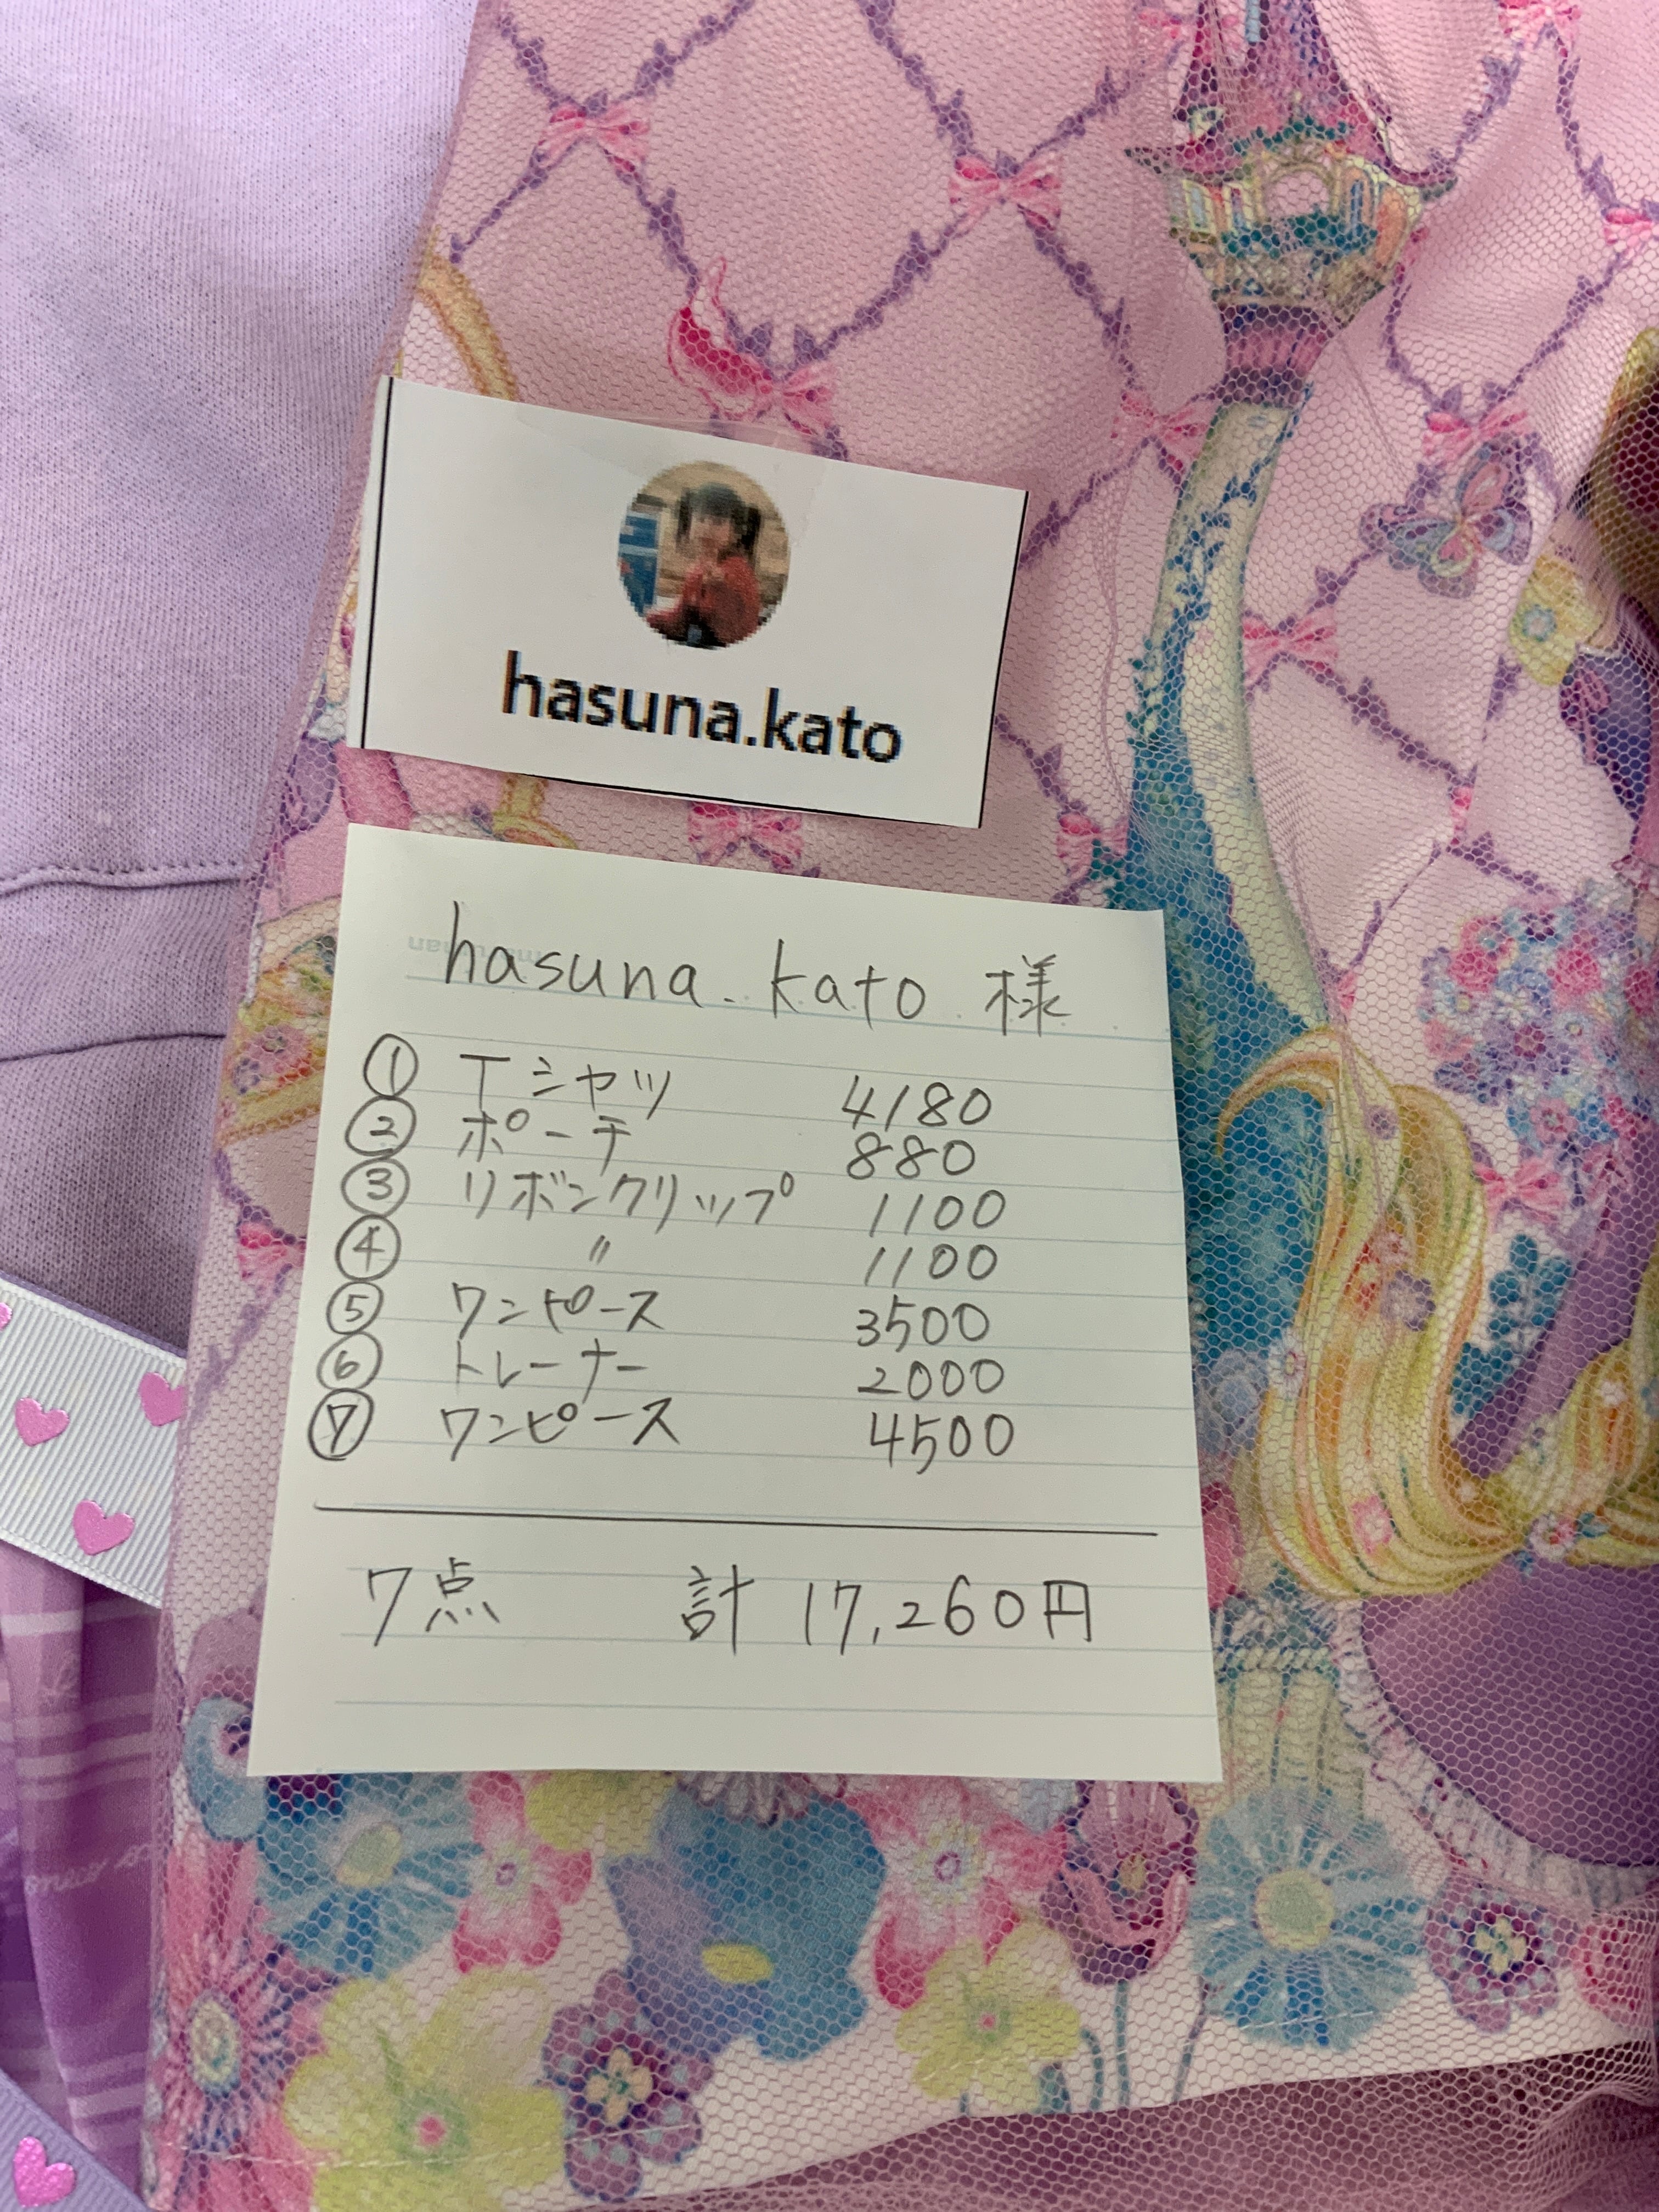 hasuna.kato
hasuna.kato 様
① Tシャツ 4180
② ポーチ 880
③ リボンクリップ 1100
④ 〃 1100
⑤ ワンピース 3500
⑥ トレーナー 2000
⑦ ワンピース 4500
7点 計 17,260円